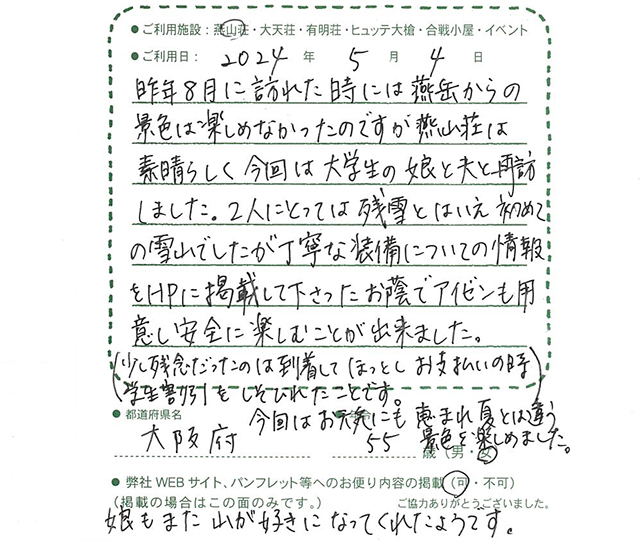 ● ご利用施設：燕山荘・大天荘・有明荘・ヒュッテ大槍・合戦小屋・イベント
● ご利用日： 2024 年 5 月 4 日
昨年8月に訪れた時には燕岳からの
景色は楽しめなかったのですが燕山荘は
素晴らしく今回は大学生の娘と夫と再訪
しました。2人にとっては残雪とはいえ初めて
の雪山でしたが丁寧な装備についての情報
をHPに掲載して下さったお蔭でアイゼンも用
意し安全に楽しむことが出来ました。
(少し残念だったのは到着してほっとしお支払いの時
学生割引をしそびれたことです。)
今回はお天気にも恵まれ夏とは違う
景色を楽しめました。
● 都道府県名
大阪府
55 歳（男・女）
● 弊社WEBサイト、パンフレット等へのお便り内容の掲載（可・不可）
（掲載の場合はこの面のみです。） ご協力ありがとうございました。
娘もまた山が好きになってくれたようです。